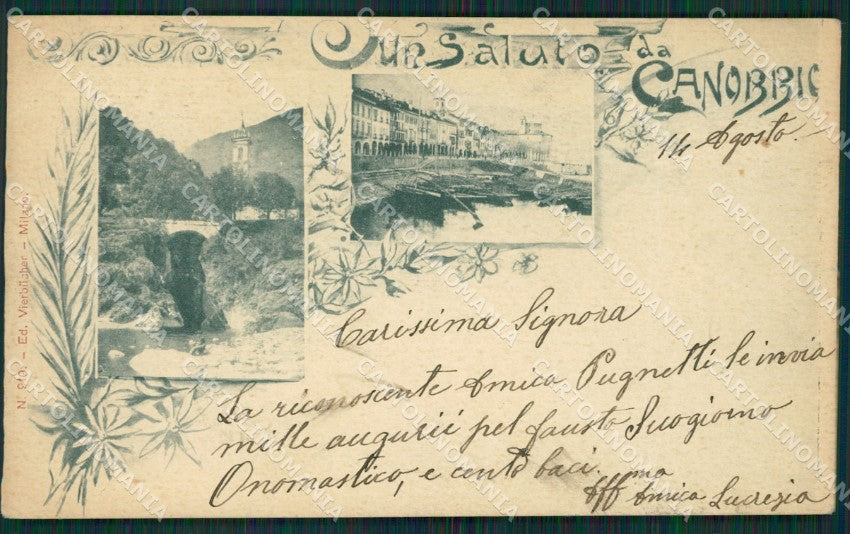 Un Saluto da
CANOBBIO
14 Agosto.
Carissima Signora
La riconoscente Amica Pugnetti le invia
mille augurii pel fausto Suo giorno
Onomastico, e cento baci.
Aff ma
Amica Lucrezia
N. 910. – Ed. Vierbücher – Milano.
CARTOLINOMANIA